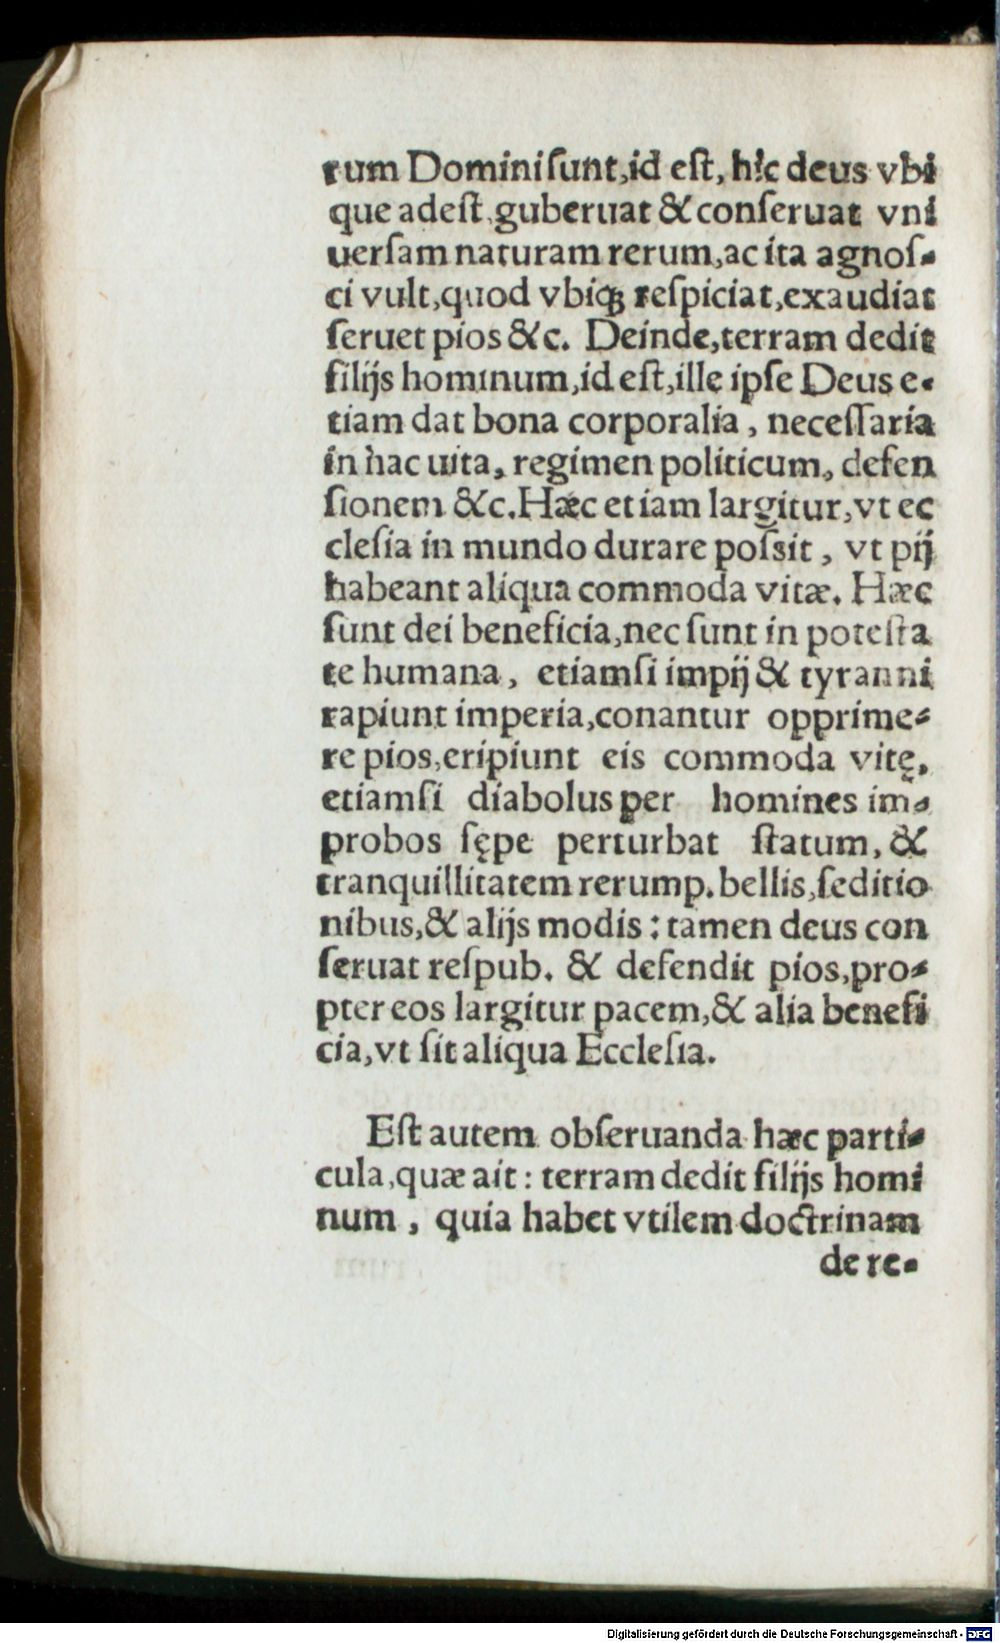 rum Domini ſunt, id eſt, hic deus vbi
que adeſt, guberuat & conſeruat vni
uerſam naturam rerum, ac ita agnoſ-
ci vult, quod vbiqꝫ reſpiciat, exaudiat
ſeruet pios &c. Deinde, terram dedit
filijs hominum, id eſt, ille ipſe Deus e-
tiam dat bona corporalia, neceſſaria
in hac uita, regimen politicum, defen
ſionem &c. Hæc etiam largitur, vt ec
cleſia in mundo durare poſsit, vt pij
habeant aliqua commoda vitæ. Hæc
ſunt dei beneficia, nec ſunt in poteſta
te humana, etiamſi impij & tyranni
rapiunt imperia, conantur opprime-
re pios, eripiunt eis commoda vitę,
etiamſi diabolus per homines im-
probos ſępe perturbat ſtatum, &
tranquillitatem rerump. bellis, ſeditio
nibus, & alijs modis: tamen deus con
ſeruat reſpub. & defendit pios, pro-
pter eos largitur pacem, & alia benefi
cia, vt ſit aliqua Eccleſia.
Eſt autem obſeruanda hæc parti-
cula, quæ ait: terram dedit filijs homi
num, quia habet vtilem doctrinam
de re-
Digitalisierung gefördert durch die Deutsche Forschungsgemeinschaft - DFG